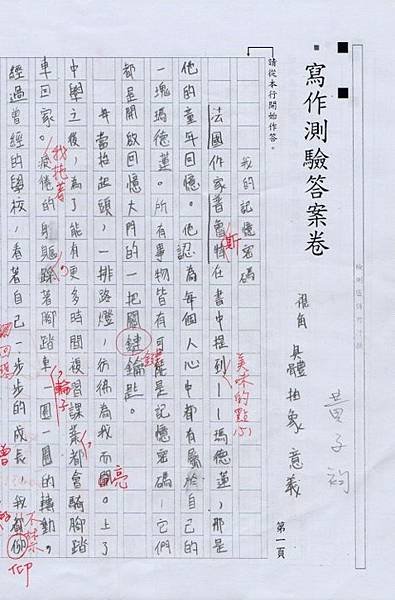 寫作測驗答案卷
請從本行開始作答。
視角 具體 抽象 意義
黃子
第一頁
我的記憶密碼
法國作家普魯特在書中提到——瑪德蓮,那是
斯
美味的點心
他的童年回憶。他認為每個人心中都有屬於自己的
一塊瑪德蓮。所有事物皆有可能是記憶密碼,它們
都是開啟回憶大門的一把關鍵鑰匙。
鍵
每當抬起頭,一排路燈,彷彿為我而 。上了
亮
中學之後,為了能有更多時間複習課業都會騎腳踏
車回家。疲憊的身軀踩著腳踏車一圈一圈的轉動。
我拖著
輪子
經過曾經的學校,看著自己一步步的成長,我都
不禁
曾